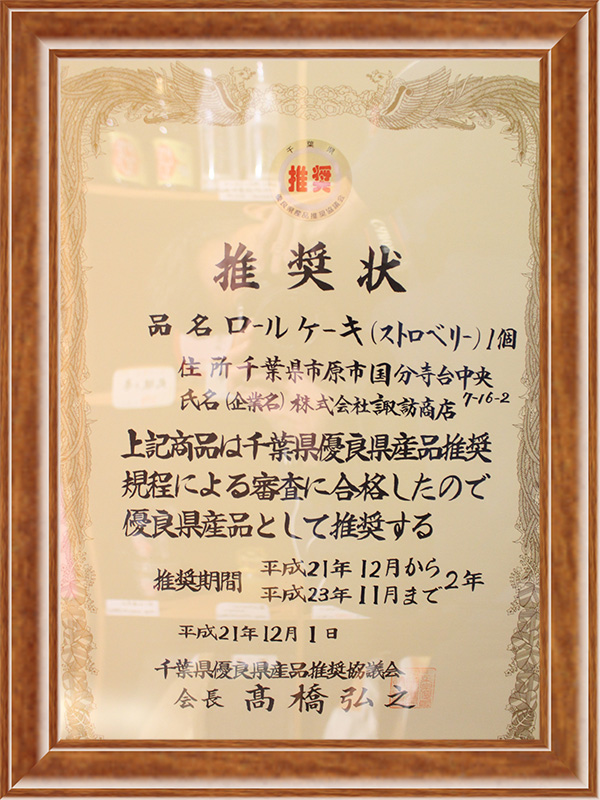 千葉県
推奨
優良県産品推奨協議会
推奨状
品名 ロールケーキ(ストロベリー)1個
住所 千葉県市原市国分寺台中央
7-16-2
氏名(企業名) 株式会社諏訪商店
上記商品は千葉県優良県産品推奨
規程による審査に合格したので
優良県産品として推奨する
推奨期間 平成21年12月から
平成23年11月まで 2年
平成21年12月1日
千葉県優良県産品推奨協議会
会長 髙橋弘之